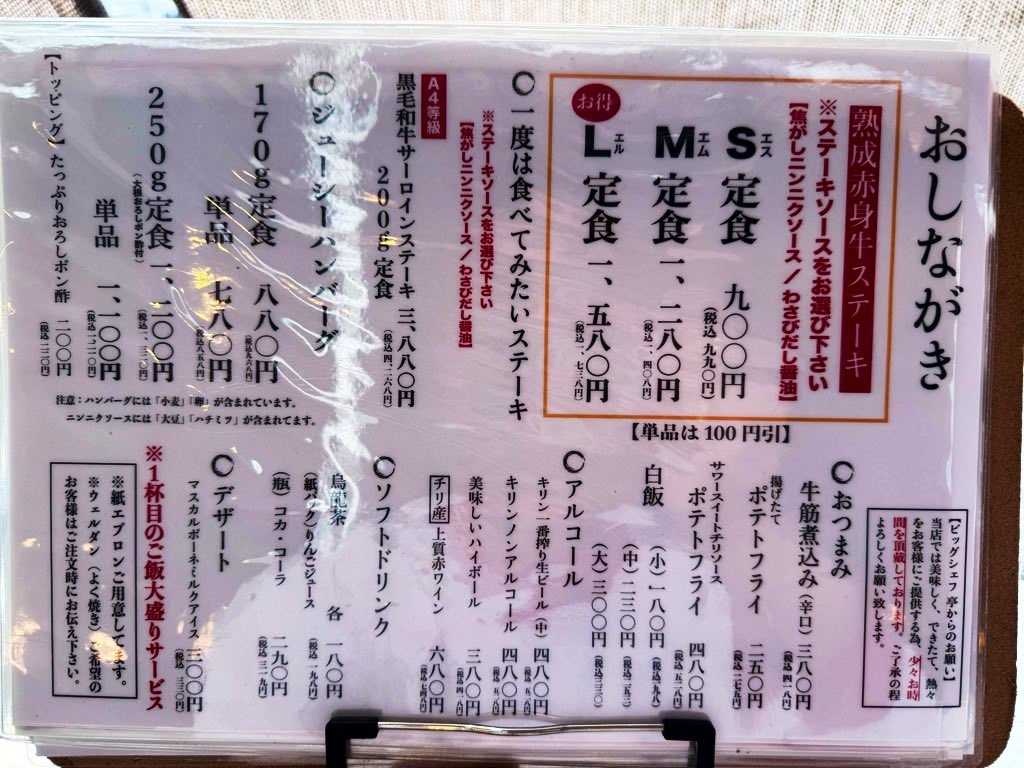 おしながき
熟成赤身牛ステーキ
※ステーキソースをお選び下さい
【焦がしニンニクソース／わさびだし醤油】
S エス 定食 九〇〇円
（税込 九九〇円）
M エム 定食 一、二八〇円
（税込 一、四〇八円）
お得
L エル 定食 一、五八〇円
（税込 一、七三八円）
【単品は100円引】
〇一度は食べてみたいステーキ
※ステーキソースをお選び下さい
【焦がしニンニクソース／わさびだし醤油】
A4等級
黒毛和牛サーロインステーキ 三、八八〇円
200g定食（税込 四、二六八円）
〇ジューシーハンバーグ
170g定食 八八〇円
（税込 九六八円）
単品 七八〇円
（税込 八五八円）
250g定食 一、二〇〇円
（大根おろしポン酢付）（税込 一、三二〇円）
単品 一、一〇〇円
（税込 一、二一〇円）
【トッピング】たっぷりおろしポン酢 二〇〇円
（税込 二二〇円）
注意：ハンバーグには「小麦」「卵」が含まれています。
ニンニクソースには「大豆」「ハチミツ」が含まれてます。
【ビッグシェフ 亭からのお願い】
当店では美味しく、できたて、熱々
をお客様にご提供する為、少々お時
間を頂戴しております。ご了承の程
よろしくお願い致します。
〇おつまみ
牛筋煮込み（辛口）三八〇円
（税込 四一八円）
揚げたて
ポテトフライ 二五〇円
（税込 二七五円）
サワースイートチリソース
ポテトフライ 四八〇円
（税込 五二八円）
白飯 （小）一八〇円
（税込 一九八）
（中）二三〇円
（税込 二五三）
（大）三〇〇円
（税込 三三〇）
〇アルコール
キリン一番搾り生ビール（中）四八〇円
キリンノンアルコール 四八〇円
美味しいハイボール 三八〇円
チリ産 上質赤ワイン 六八〇円
（税込 七四八）
〇ソフトドリンク
烏龍茶 各 一八〇円
（紙パック）りんごジュース（税込 一九八円）
（瓶）コカ・コーラ 二九〇円
（税込 三一九円）
〇デザート
マスカルポーネミルクアイス 三〇〇円
（税込 三三〇円）
※１杯目のご飯大盛りサービス
※紙エプロンご用意してます。
※ウェルダン（よく焼き）ご希望の
お客様はご注文時にお伝え下さい。